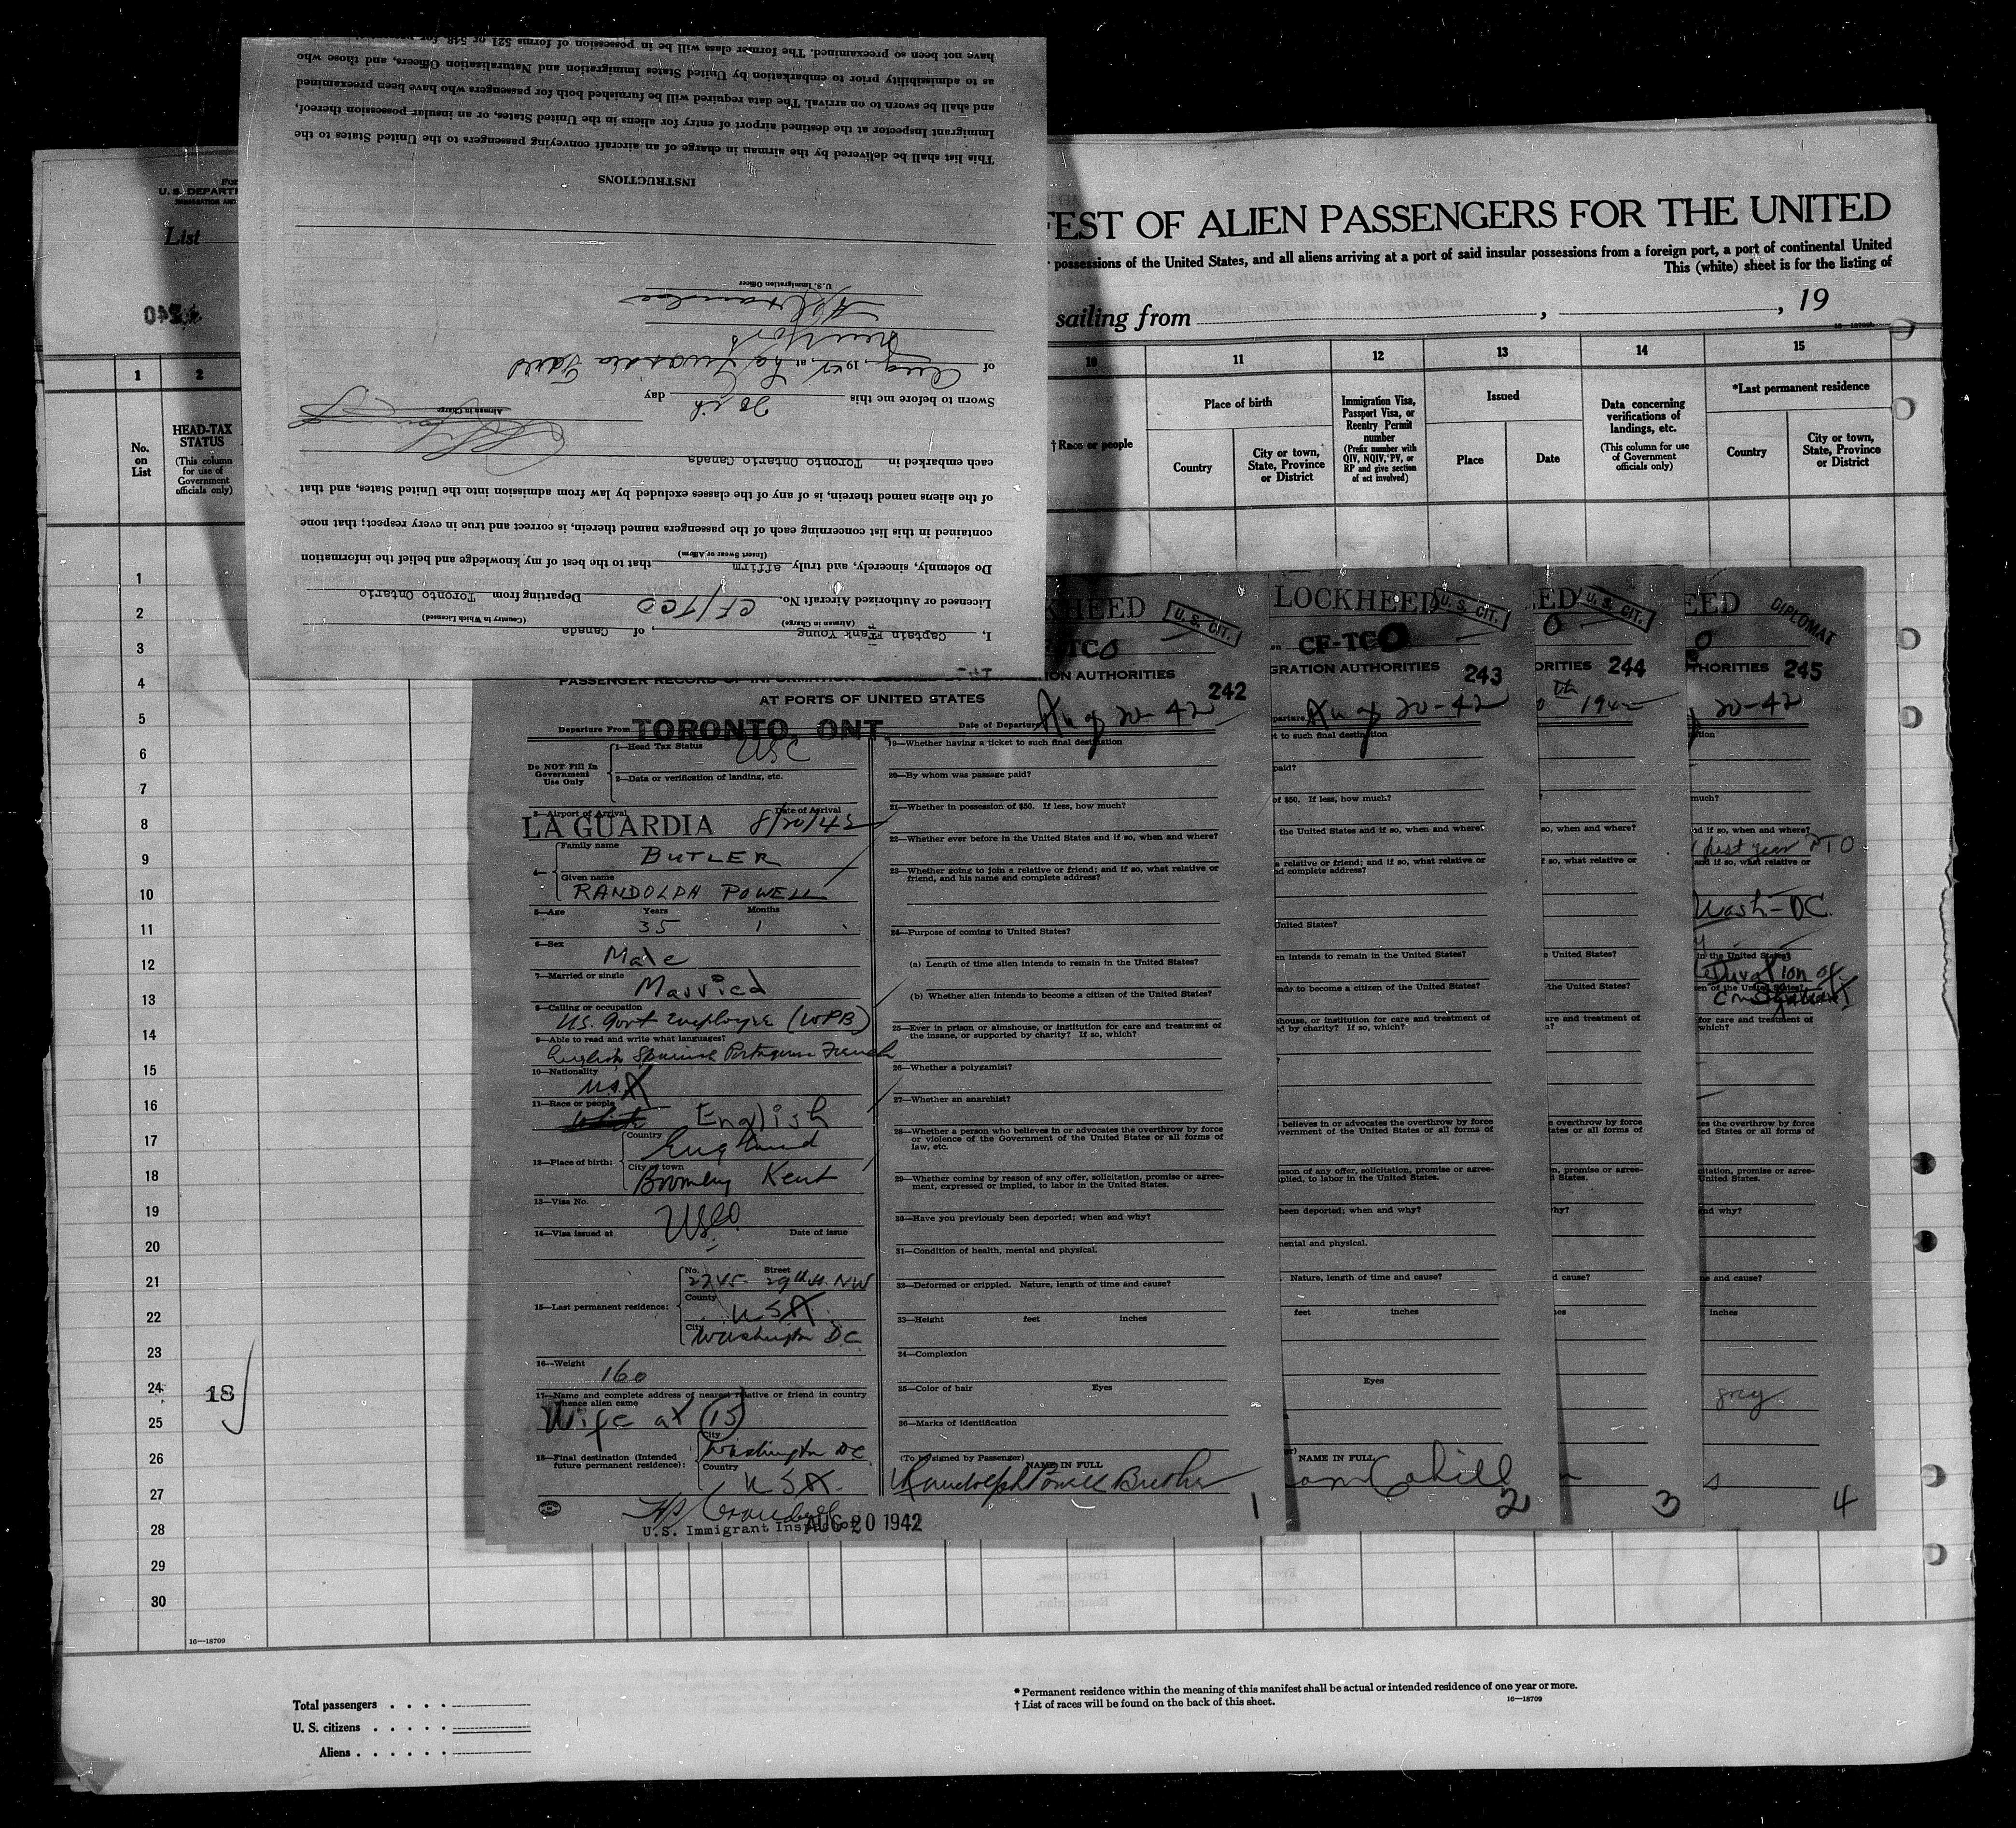 U. S. DEPARTM
IMMIGRATION AND
List
FEST OF ALIEN PASSENGERS FOR THE UNITED
possessions of the United States, and all aliens arriving at a port of said insular possessions from a foreign port, a port of continental United
This (white) sheet is for the listing of
sailing from , , 19
1 2 10 11 12 13 14 15
No. on List
HEAD-TAX STATUS
(This column for use of Government officials only)
†Race or people
Place of birth
Country
City or town, State, Province or District
Immigration Visa, Passport Visa, or Reentry Permit number
(Prefix number with QIV, NQIV, PV, or RP and give section of act involved)
Issued
Place
Date
Data concerning verifications of landings, etc.
(This column for use of Government officials only)
*Last permanent residence
Country
City or town, State, Province or District
1
2
3
4
5
6
7
8
9
10
11
12
13
14
15
16
17
18
19
20
21
22
23
24
25
26
27
28
29
30
18
16—18709
Total passengers . . . .
U. S. citizens . . . . .
Aliens . . . . . .
* Permanent residence within the meaning of this manifest shall be actual or intended residence of one year or more.
† List of races will be found on the back of this sheet.
16—18709
I, Captain Frank Young, of Canada
(Airman in Charge) (Country in Which Licensed)
Licensed or Authorized Aircraft No. CF/TCO Departing from Toronto Ontario
Do solemnly, sincerely, and truly affirm that to the best of my knowledge and belief the information
(Insert Swear or Affirm)
contained in this list concerning each of the passengers named therein, is correct and true in every respect; that none
of the aliens named therein, is of any of the classes excluded by law from admission into the United States, and that
each embarked in Toronto Ontario Canada
Airman in Charge
Sworn to before me this 20th day
of Aug, 194 at La Guardia Field
New York
U. S. Immigration Officer
INSTRUCTIONS
This list shall be delivered by the airman in charge of an aircraft conveying passengers to the United States to the
Immigrant Inspector at the destined airport of entry for aliens in the United States, or an insular possession thereof,
and shall be sworn to on arrival. The data required will be furnished both for passengers who have been preexamined
as to admissibility prior to embarkation by United States Immigration and Naturalization Officers, and those who
have not been so preexamined. The former class will be in possession of forms 521 or 548
KHEED U. S. CIT.
TCO
ON AUTHORITIES
242
AT PORTS OF UNITED STATES
Departure From TORONTO, ONT. Date of Departure Aug 20-42
Do NOT Fill In Government Use Only
1—Head Tax Status USC
2—Data or verification of landing, etc.
3—Airport of Arrival Date of Arrival
LA GUARDIA 8/20/42
4— Family name BUTLER
Given name RANDOLPH POWELL
5—Age Years 35 Months 1
6—Sex Male
7—Married or single Married
8—Calling or occupation
US. Govt Employee (WPB)
9—Able to read and write what languages?
English Spanish Portuguese French
10—Nationality USA
11—Race or people White English
12—Place of birth: Country England
City or town Bromley Kent
13—Visa No.
14—Visa issued at Date of issue
15—Last permanent residence: No. Street 2745 29th St. NW
County USA
City Washington DC
16—Weight 160
17—Name and complete address of nearest relative or friend in country whence alien came
Wife at (15)
18—Final destination (Intended future permanent residence): City Washington DC
Country USA.
U.S. Immigrant Inspector
AUG 20 1942
19—Whether having a ticket to such final destination
20—By whom was passage paid?
21—Whether in possession of $50. If less, how much?
22—Whether ever before in the United States and if so, when and where?
23—Whether going to join a relative or friend; and if so, what relative or
friend, and his name and complete address?
24—Purpose of coming to United States?
(a) Length of time alien intends to remain in the United States?
(b) Whether alien intends to become a citizen of the United States?
25—Ever in prison or almshouse, or institution for care and treatment of
the insane, or supported by charity? If so, which?
26—Whether a polygamist?
27—Whether an anarchist?
28—Whether a person who believes in or advocates the overthrow by force
or violence of the Government of the United States or all forms of
law, etc.
29—Whether coming by reason of any offer, solicitation, promise or agree-
ment, expressed or implied, to labor in the United States.
30—Have you previously been deported; when and why?
31—Condition of health, mental and physical.
32—Deformed or crippled. Nature, length of time and cause?
33—Height feet inches
34—Complexion
35—Color of hair Eyes
36—Marks of identification
(To be signed by Passenger) NAME IN FULL
Randolph Powell Butler
1
LOCKHEED U. S. CIT.
CF-TCO
GRATION AUTHORITIES 243
Aug 20-42
Nature, length of time and cause?
feet inches
Eyes
NAME IN FULL
Cahill
2
ED U. S. CIT.
ORITIES 244
3
EED DIPLOMAT
THORITIES 245
20-42
last year NTO
Wash-DC.
Duration of
grey
4